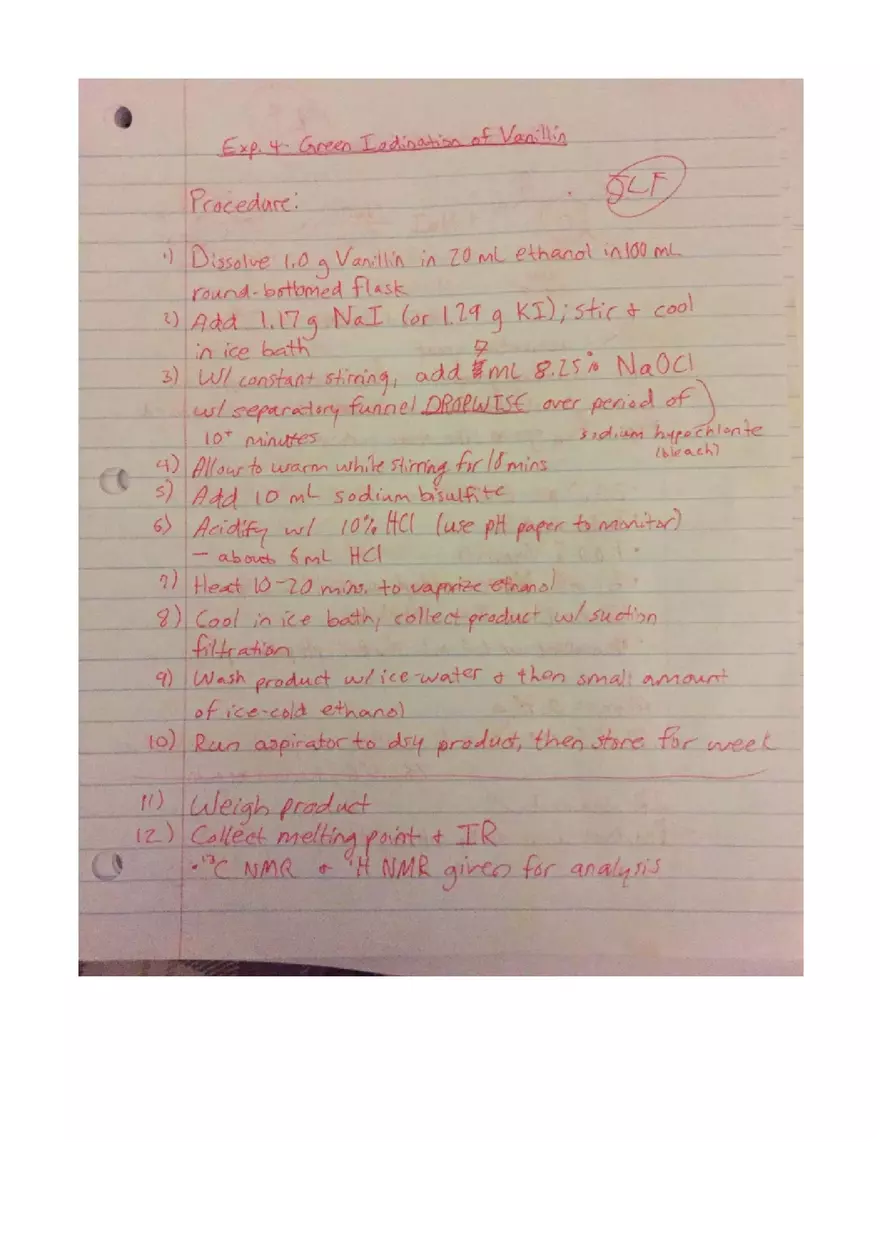 Exp. 4 - Green Iodination of Vanillin
Procedure:
1) Dissolve 1.0 g Vanillin in 20 mL ethanol in 100 mL
round-bottomed flask
2) Add 1.17 g NaI (or 1.29 g KI); stir & cool
in ice bath
3) W/ constant stirring, add 7 mL 8.25% NaOCl
w/ separatory funnel DROPWISE over period of
10+ minutes
sodium hypochlorite
(bleach)
4) Allow to warm while stirring for 10 mins
5) Add 10 mL sodium bisulfite
6) Acidify w/ 10% HCl (use pH paper to monitor)
- about 6 mL HCl
7) Heat 10-20 mins. to vaporize ethanol
8) Cool in ice bath, collect product w/ suction
filtration
9) Wash product w/ ice-water & then small amount
of ice-cold ethanol
10) Run aspirator to dry product, then store for week
11) Weigh product
12) Collect melting point & IR
• ¹³C NMR & ¹H NMR given for analysis